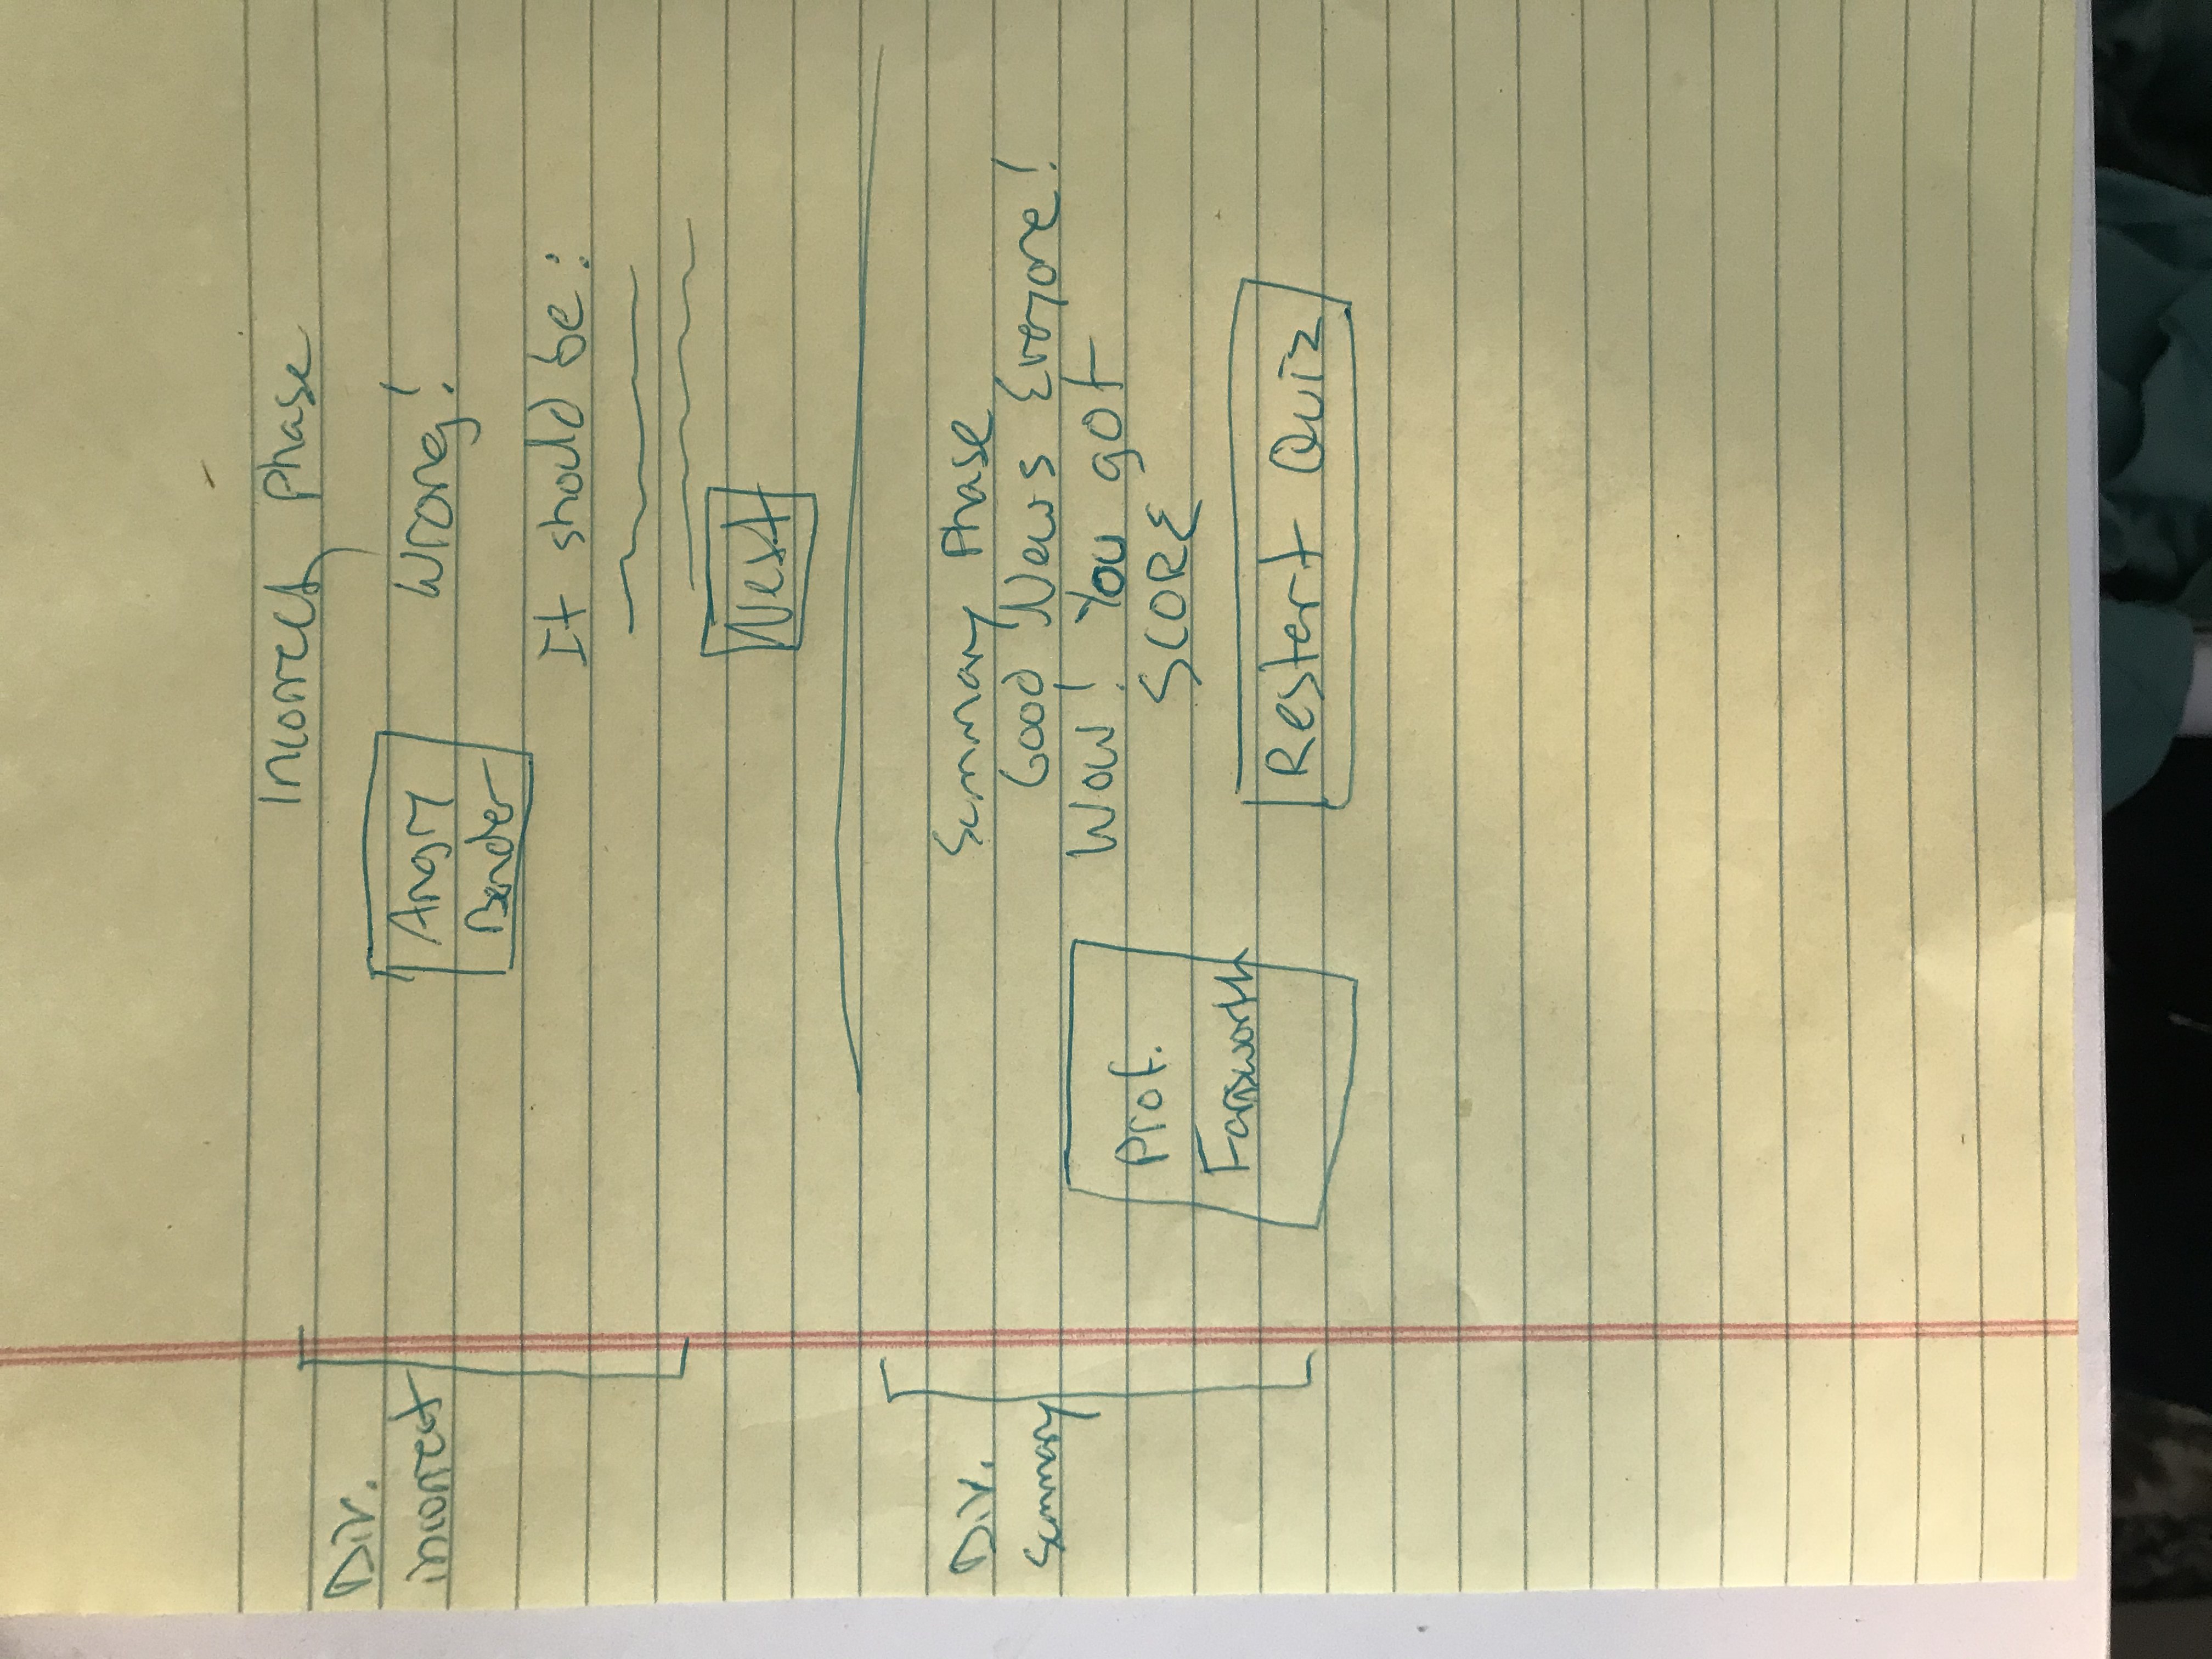 Incorrect Phase
Div.
incorrect
Angry
Bender
Wrong!
It should be:
Next
Div.
Summary
Summary Phase
Good News Everyone!
Wow! You got
SCORE
Prof.
Farnsworth
Restart Quiz